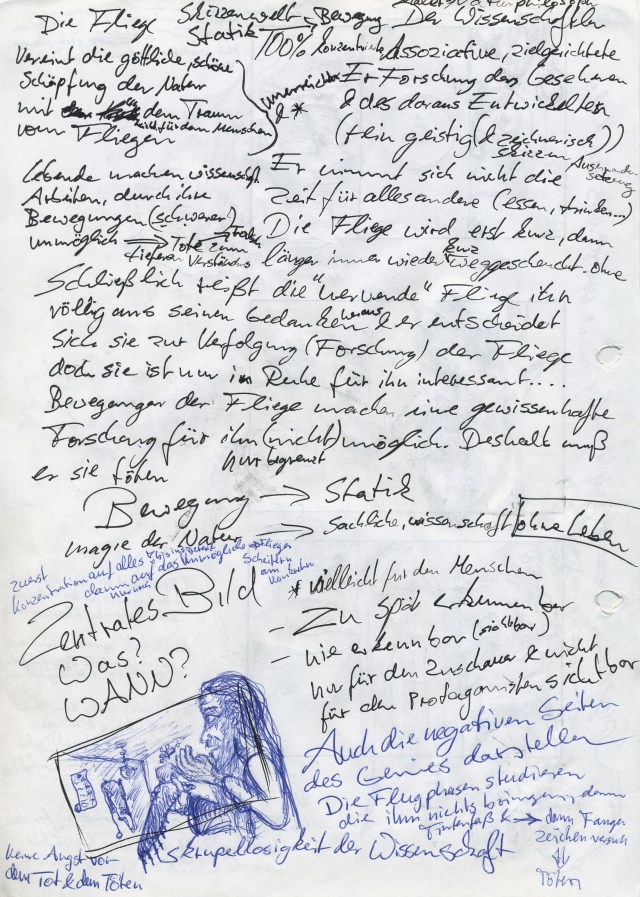 Die Fliege
Skizzenwelt → Bewegung
Statik
Der Wissenschaftler
100% konzentrierte Assoziative, zielgerichtete
Vereint die göttliche, schöne
Schöpfung der Natur
mit dem Traum
nicht für den Menschen
vom Fliegen
unerreichte
& *
Erforschung des Gesehenen
& des daraus Entwickelten
(rein geistig (& zeichnerisch))
Skizzen
Er nimmt sich nicht die
Zeit für alles andere (essen, trinken...)
Lebende machen wissenschaft.
Arbeiten, durch ihre
Bewegungen (schwerer!)
unmöglich ⇒ Tote zum
tieferen Verständnis
Die Fliege wird erst kurz, dann
länger immer wieder kurz weggescheucht. ohne
Schließlich reißt die "nervende" Fliege ihn
völlig aus seinen Gedanken heraus & er entscheidet
sich sie zur Verfolgung (Forschung) der Fliege
doch sie ist nur in Ruhe für ihn interessant....
Bewegungen der Fliege machen eine gewissenhafte
Forschung für ihn (nicht) möglich. Deshalb muß
nur begrenzt
er sie töten
Bewegung → Statik
magie der Natur → sachliche, wissenschaft ohne Leben
zuerst
Konzentration auf alles
dann auf das unmögliche → Fliegen
Scheitern
am
Zentrales Bild
Was?
WANN?
* vielleicht für den Menschen
- Zu spät erkennbar
- nie erkennbar (sichtbar)
nur für den Zuschauer & nicht
für den Protagonisten sichtbar
Auch die negativen Seiten
des Genies darstellen
Die Flugphasen studieren
die ihm nichts bringen, dann
Tintenfaß & → dann Fangen
zeichen versuch
⇓
Töten
Skrupellosigkeit der Wissenschaft
keine Angst vor
dem Tot & dem Töten